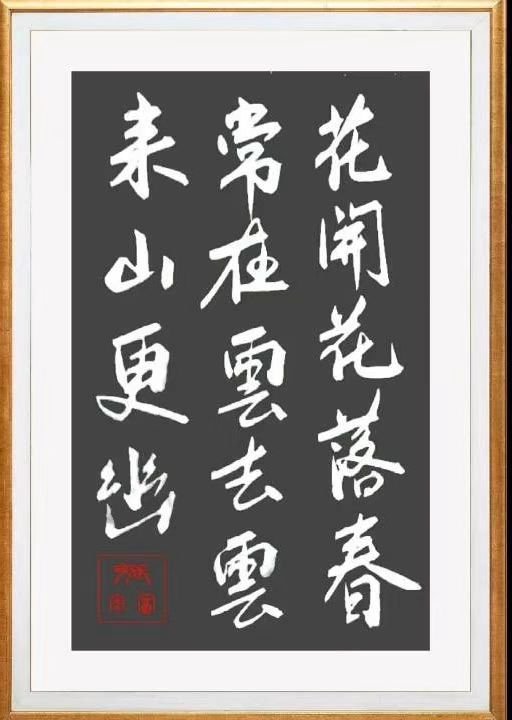 花開花落春
常在雲去雲
来山更幽